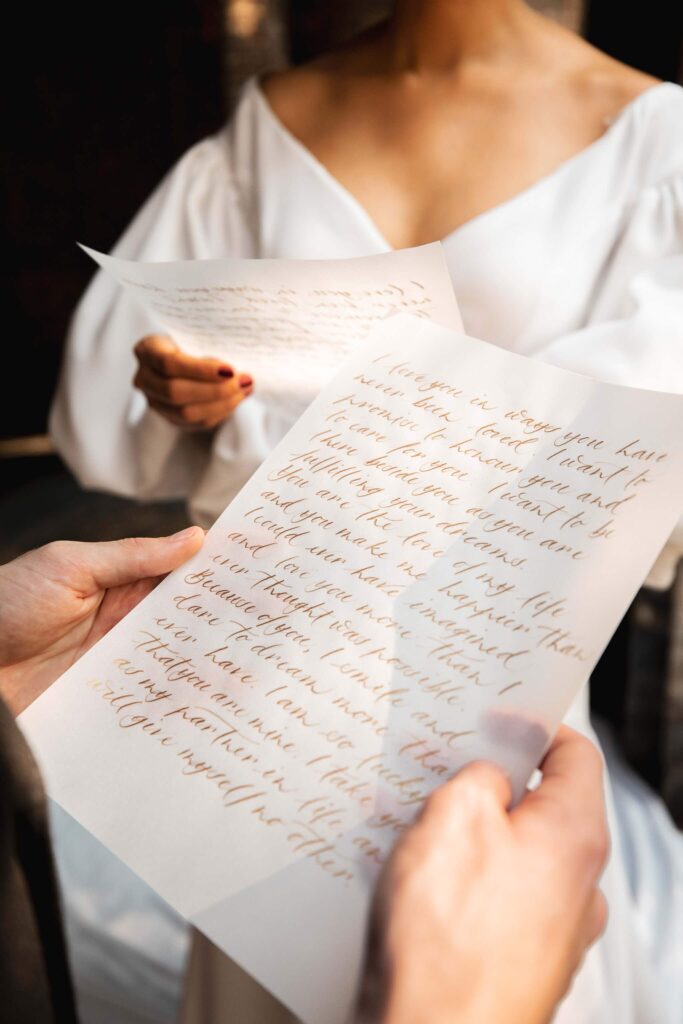 I love you in ways you have
never been loved. I want to
promise to honour you and
to care for you. I want to be
there beside you as you are
fulfilling your dreams.
You are the love of my life
and you make me happier than
I could ever have imagined
and love you more than I
ever thought was possible.
Because of you, I smile and
dare to dream more than
ever have. I am so lucky
that you are mine. I take you
as my partner in life, and
will give myself no other.